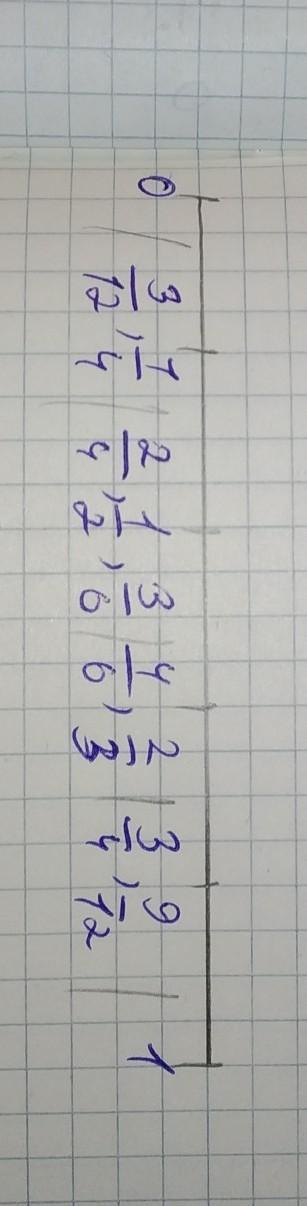 0 / 3/12, 1/4 / 2/4, 1/2, 3/6 / 4/6, 2/3 / 3/4, 9/12 / 1